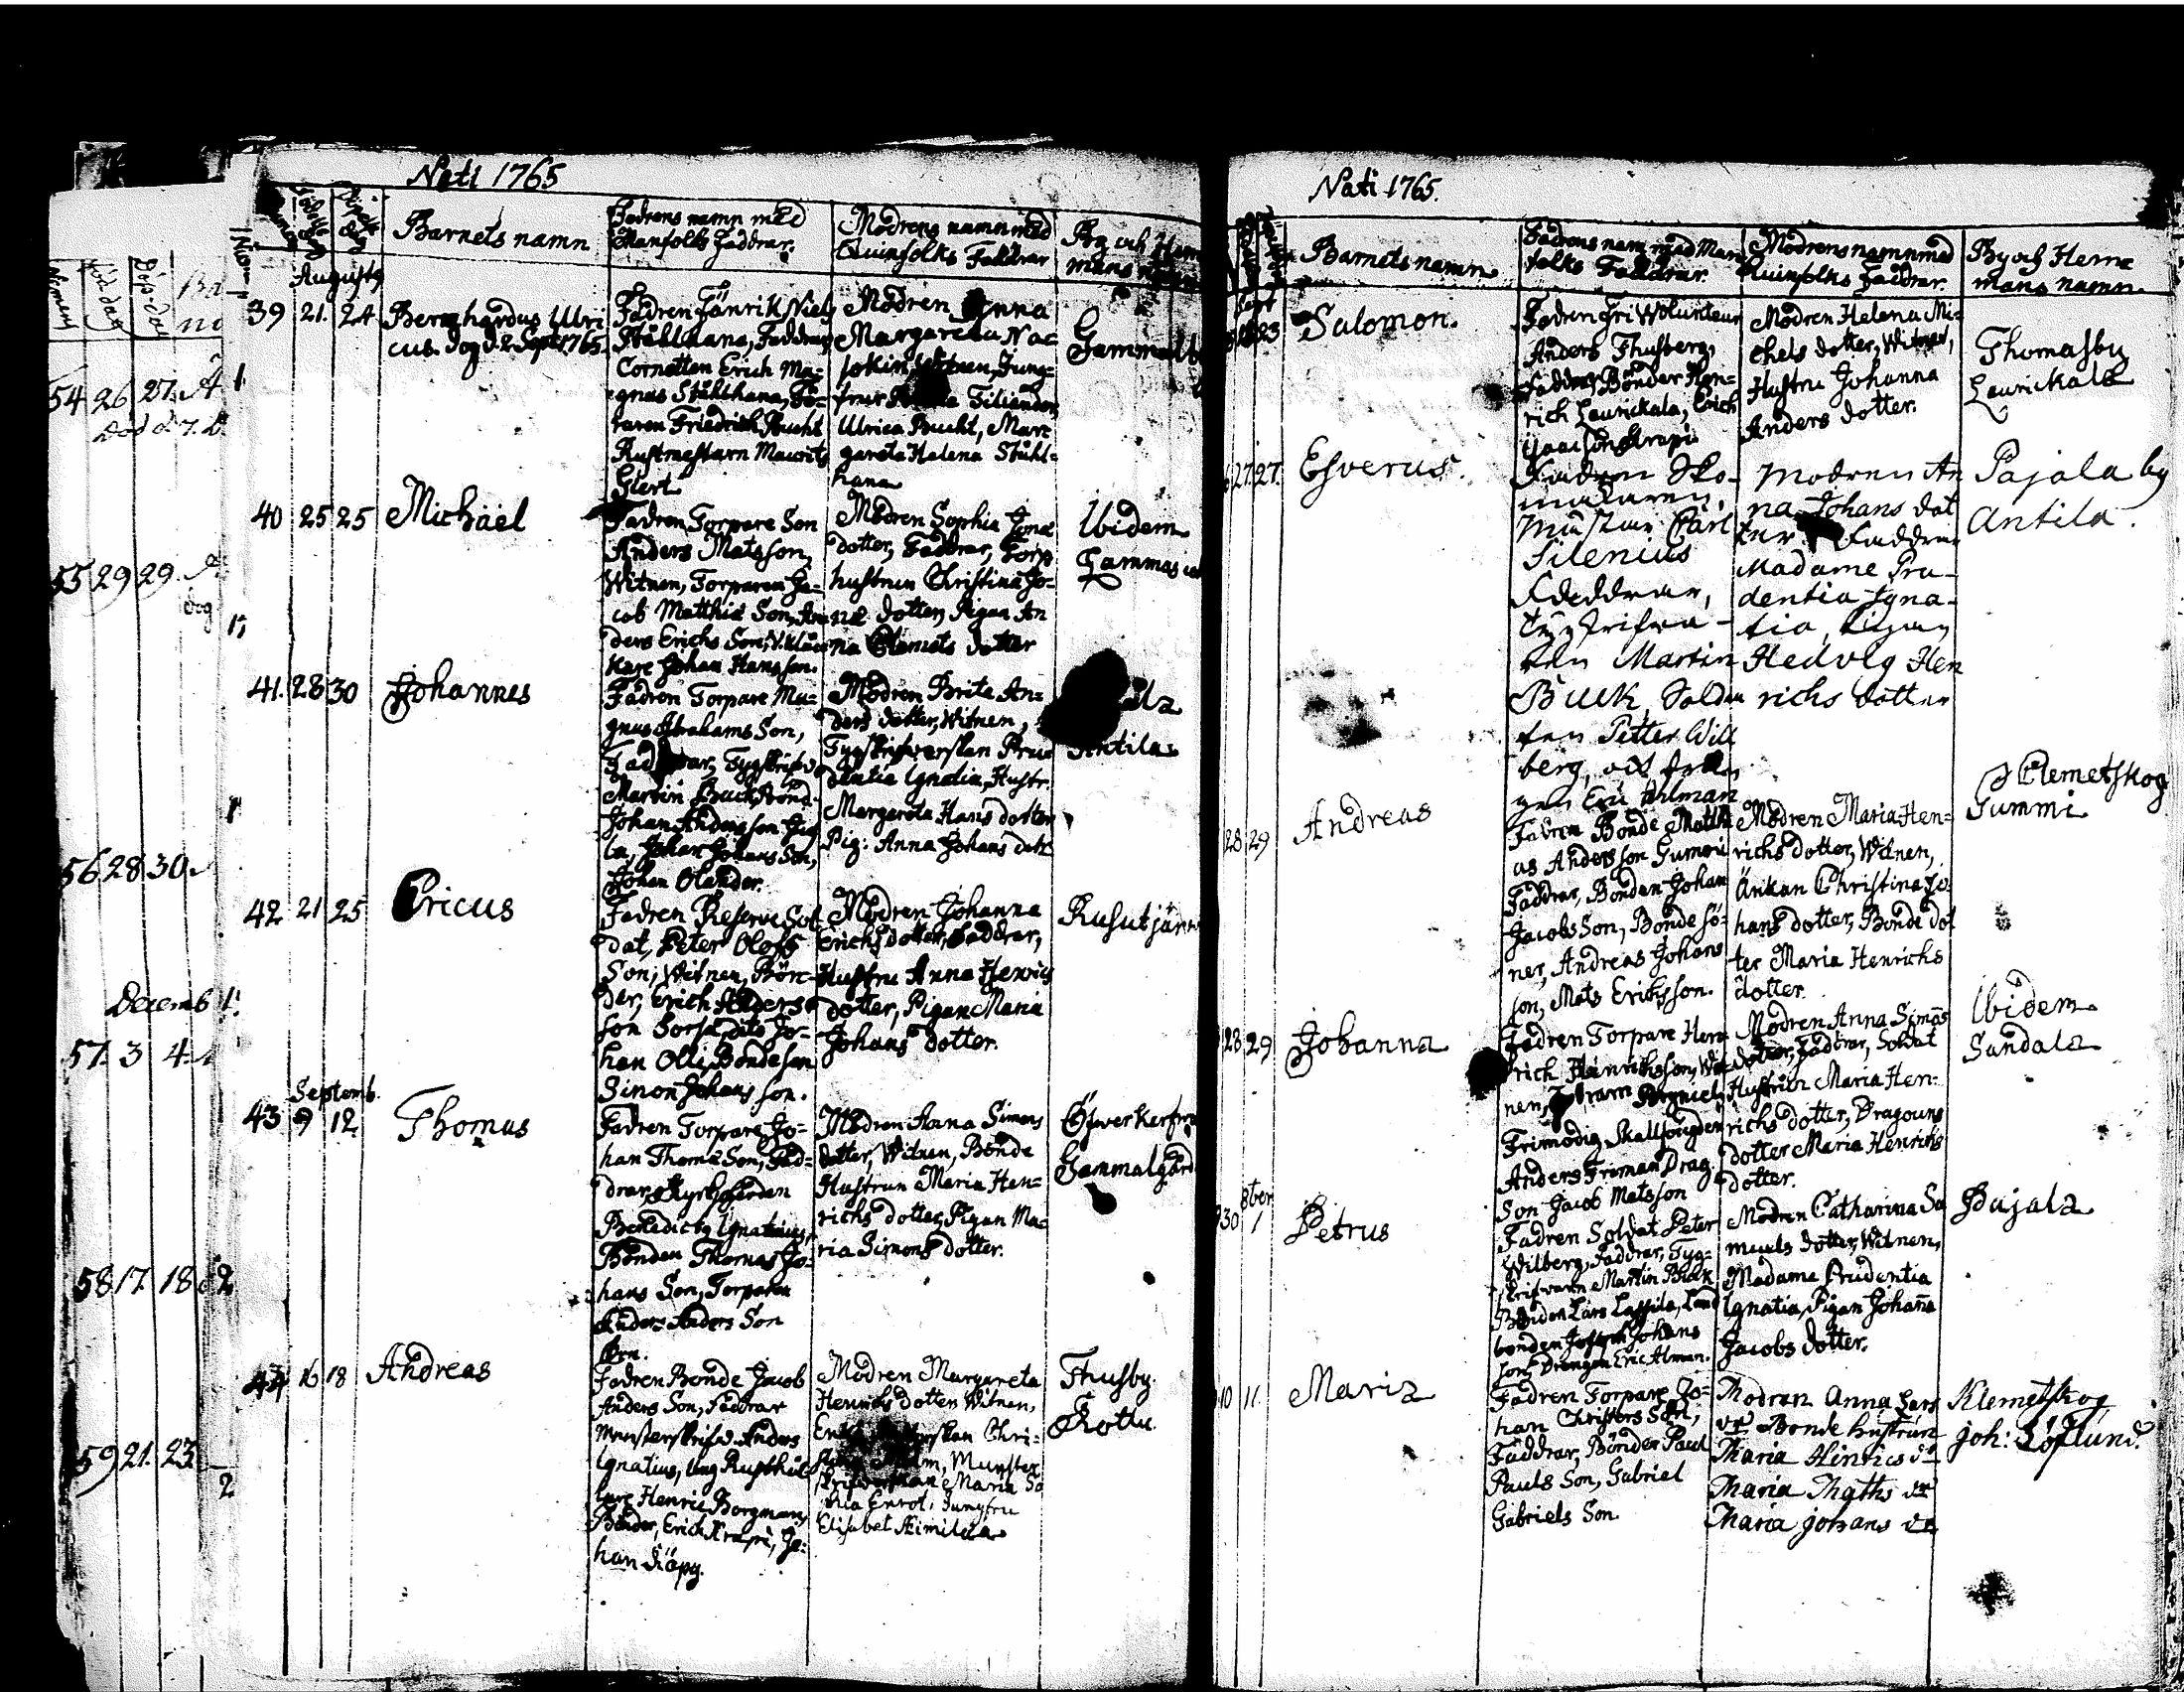 Nati 1765
Barnets namn
Fadrens namn med
Manfolks Faddrar.
Modrens namn med
Quinfolks Faddrar
By och Hem
mans
Augusti
39 21. 24
Bernhardus Ulri
cus. dog d. 2 Sept. 1765.
Fadren Fänrik Niels
Stålhana, Faddrar
Cornetten Erich Ma-
gnus Stålhana,
Friedrich Bucht
Rustmestarn Maurits
Giert
Modren Anna
Margareta
Ulrica Bucht, Mar-
gareta Helena Ståhl-
hana
40 25 25
Michaël
Fadren Torpare Son
Anders Matsson,
Witnen, Torparen Ja-
cob Matthiæ Son, An
ders Erichs Son,
Johan Hansson.
Modren Sophia
dotter, Faddrar, Torp
hustrun Christina Jo-
dotter, Pigan An
na Clemets dotter
Ibidem
41. 28 30
Johannes
Fadren Torpare Ma-
gnus Abrahams Son,
Martin Buck, Bond.
Johan Andersson
Johan Johans Son,
Johan Olander.
Modren Brita An-
ders dotter, Witnen,
Tygskrifwarskan Pru-
dentia Ignatia, Hustr.
Margareta Hans dotter
Pig: Anna Johans dott
Antila
42 21 25
Ericus
Fadren Reserve Sol
dat, Peter Olofs
Son, Witnen, Bön-
der, Erich Anders
son Sorsa, dito Jo-
han Olli, Bondeson
Simon Johans son.
Modren Johanna
Erichs dotter, Faddrar,
Hustru Anna Henrics
dotter, Pigan Maria
Johans dotter.
Rusutjärw
Septemb.
43 9 12
Thomas
Fadren Torpare Jo-
han Thomæ Son, Fad-
drar, Kyrkherden
Benedictus Ignatius,
Bonden Thomas Jo-
hans Son, Torparen
Anders Anders Son
Modren Anna Simons
dotter, Witnen, Bonde
Hustrun Maria Hen-
richs dotter, Pigan Ma-
ria Simons dotter.
Gammalgård
44 16 18
Andreas
Fadren Bonde Jacob
Anders Son, Faddrar
Munsterskrifw. Anders
Ignatius, Ung Rusthål
lare Henric Borgman,
Bönder, Erich Krapi, Jo-
han Kiöpy.
Modren Margareta
Henrichs dotter Witnen,
Munster
skrifwarskan Maria So
phia Enrot, Jungfru
Elisabet Aimilæa
Thusby.
Rottu.
Nati 1765.
Barnets namn
Fadrens namn med Man
folks Faddrar.
Modrens namn med
Quinfolks Faddrar.
By och Hem
mans namn.
Sept
23
Salomon.
Fadren Fri Wolunteur
Anders Thusberg,
Faddrar Bönder Hen-
rich Laurickala, Erich
Isaacson Krapi
Modren Helena Mi-
chels dotter, Witnen,
Hustru Johanna
Anders dotter.
Thomasby
Laurickala
27. 27.
Esverus.
Fadren Sko-
makaren,
Mästar Carl
Silenius
Faddrar,
Tygskrifwa-
ren Martin
Buck, Solda
ten Petter Will
berg,
gen Eric Ahlman
Modren An
na Johans dot
ter. Faddrar
Madame Pru-
dentia Igna-
tia, Pigan
Hedvig Hen
richs dotter
Pajala by
Antila.
28 29
Andreas
Fadren Bonde Matthi
as Andersson Gummi
Faddrar, Bonden Johan
Jacobs Son, Bonde sö-
ner, Andreas Johans
son, Mats Erichsson.
Modren Maria Hen-
richs dotter, Witnen,
Änkan Christina Jo
hans dotter, Bonde dot
ter Maria Henrichs
dotter.
Clemetskog
Gummi
28 29
Johanna
Fadren Torpare Hen
rich Hinrichsson, Wit
nen,
Frimodig, Skallfougden
Anders Friman Drag.
Son Jacob Matsson
Modren Anna Simõs
dotter, Faddrar, Soldat
Hustrun Maria Hen-
richs dotter, Dragouns
dotter Maria Henrichs
dotter.
Ibidem
Sandala
8ber
30 1
Petrus
Fadren Soldat Peter
Wilberg, Faddrar, Tyg-
skrifwaren Martin Buck
Bonden Lars Lassila, Land
bonden Joseph Johans
son, Drengen Eric Alman.
Modren Catharina Sa
muels dotter, Witnen,
Madame Prudentia
Ignatia, Pigan Johana
Jacobs dotter.
Pajala
10 11.
Maria
Fadren Torpare Jo-
han Christers Son,
Faddrar, Bönder Paul
Pauls Son, Gabriel
Gabriels Son
Modran Anna Lars
dr Bonde hustrun
Maria Hinrics dr
Maria Maths dr
Maria Johans dr
Klemetskog
Joh: Löflund.
54 26 27.
55 29 29
dog
56 28 30
Decemb
57. 3 4
58 17. 18
59 21. 23